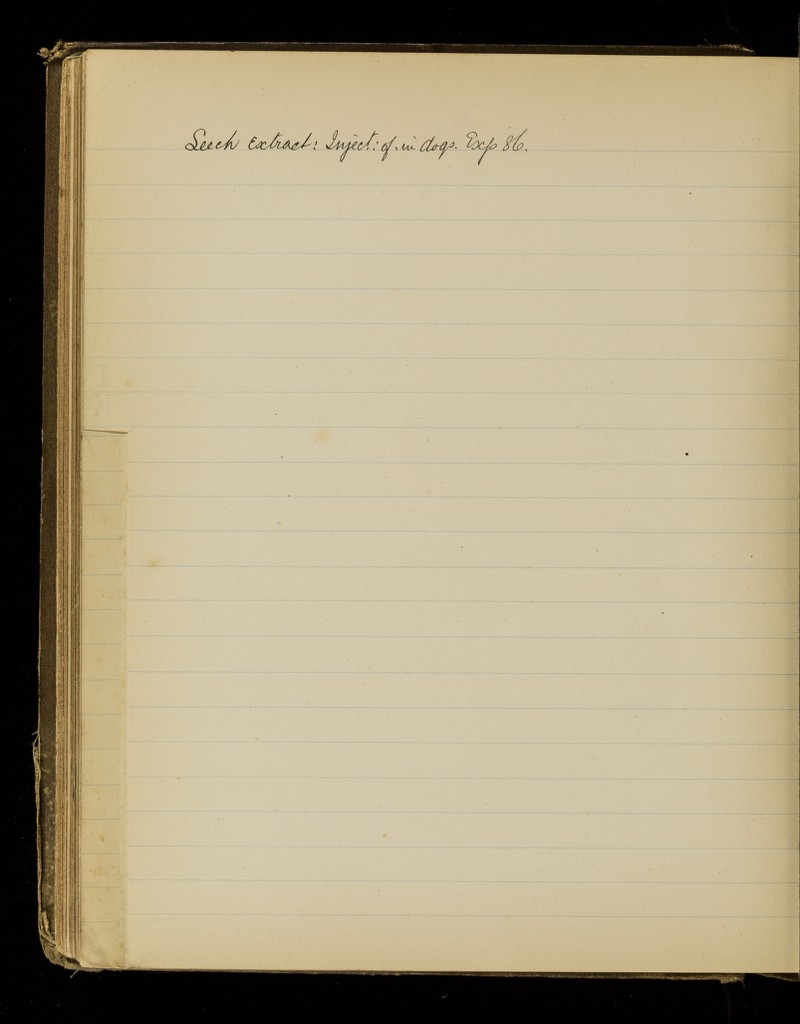 Leech Extract: Inject: of. in dogs. Exp 86.